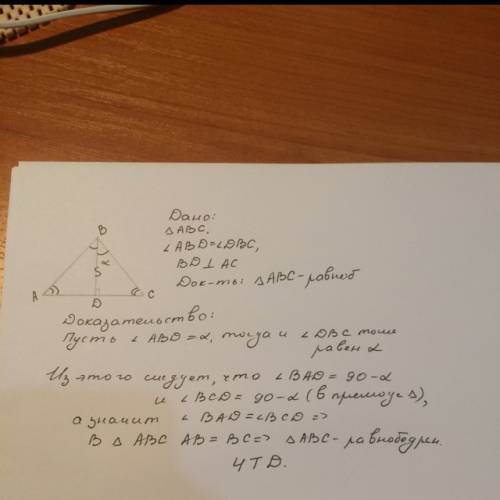 B
α
S
A
D
C
Дано:
△ABC,
∠ABD=∠DBC,
BD⊥AC
Док-ть: △ABC-равноб
Доказательство:
Пусть ∠ABD=α, тогда и ∠DBC тоже
равен α
Из этого следует, что ∠BAD=90-α
и ∠BCD=90-α (в прямоуг △),
а значит ∠BAD=∠BCD=>
В △ABC AB=BC=> △ABC-равнобедрен.
ЧТД.